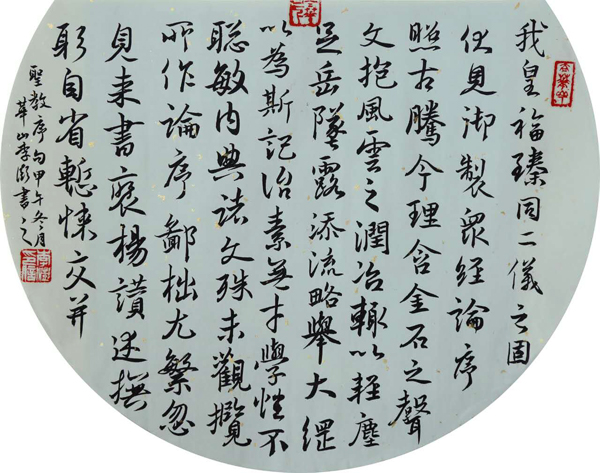 我皇福臻同二儀之固
伏見御製眾經論序
照古騰今理含金石之聲
文抱風雲之潤治輒以輕塵
足岳墜露添流略舉大綱
以為斯記治素無才學性不
聰敏內典諸文殊未觀攬
所作論序鄙拙尤繁忽
見来書褒楊讃述撫
躬自省慙悚交并
聖教序句甲午冬月
華山李書之